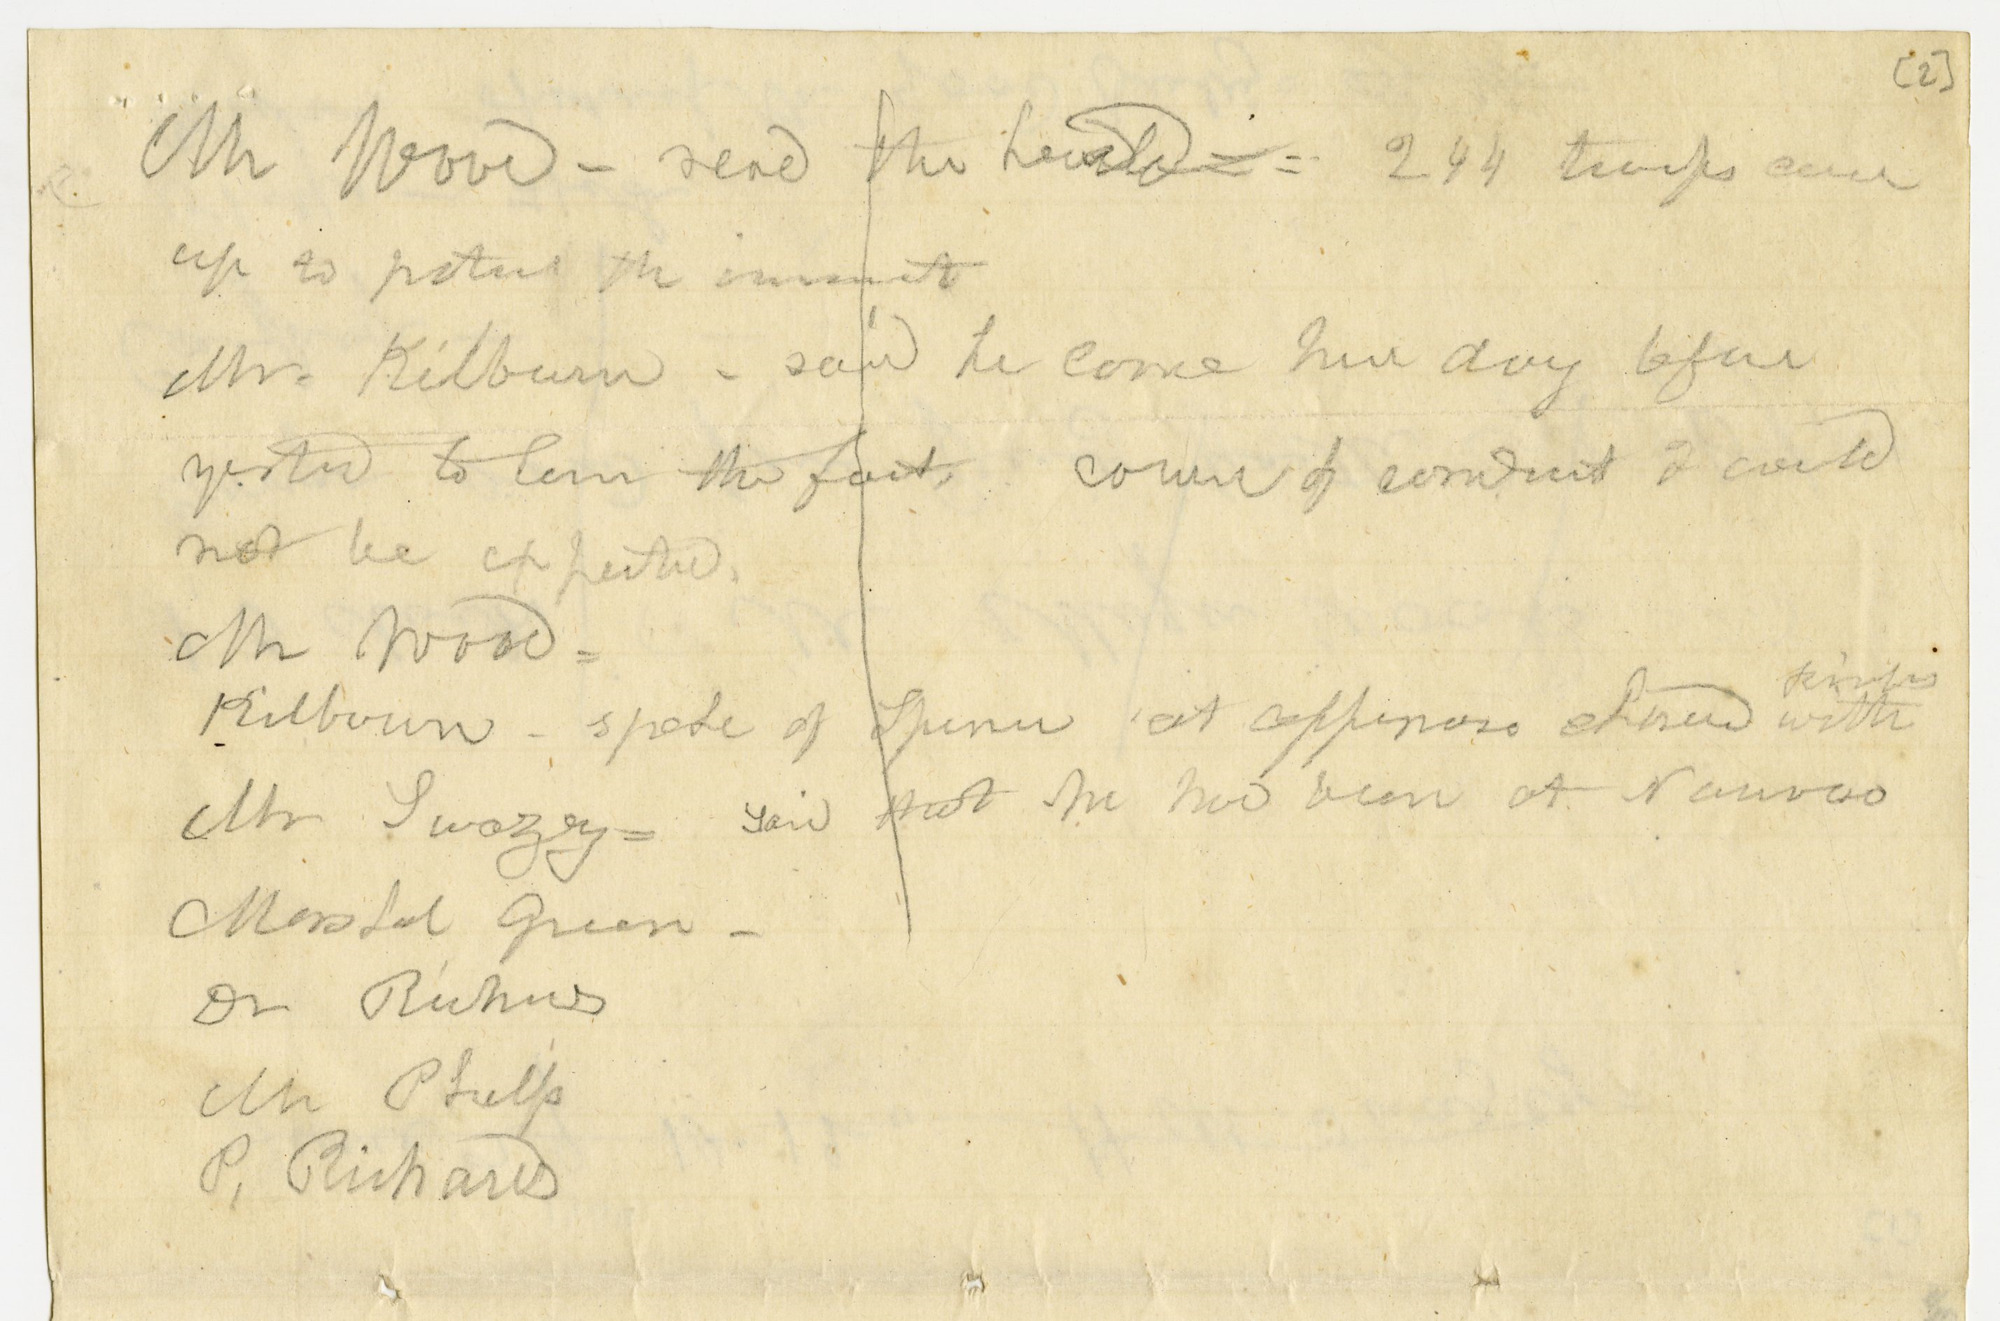 [2]
Mr Wood - read the herald = = 244 troops came
up to protect the innocent
Mr. Kilburn - said he come here day before
yested to lern the facts course of conduct & could
not be expected.
Mr Wood =
Kilbourn - spoke of at
troops
with
Mr Swazey = said that he had been at Nauvoo
Marshal Green -
Dr Richards
Mr Phelps
P, Richards